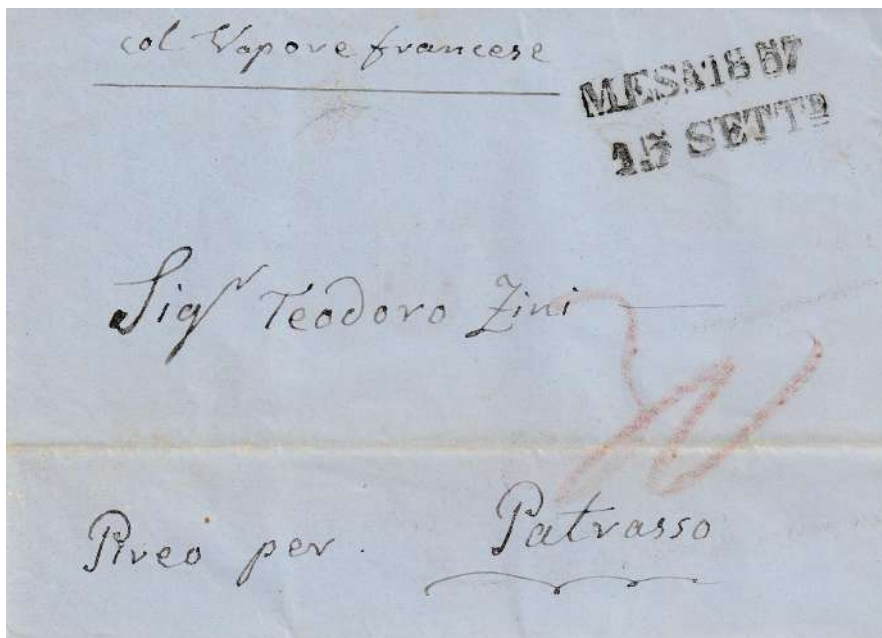 col Vapore francese
MESA 18 57
15 SETTB
Sigr Teodoro Zini
Pireo per. Patrasso